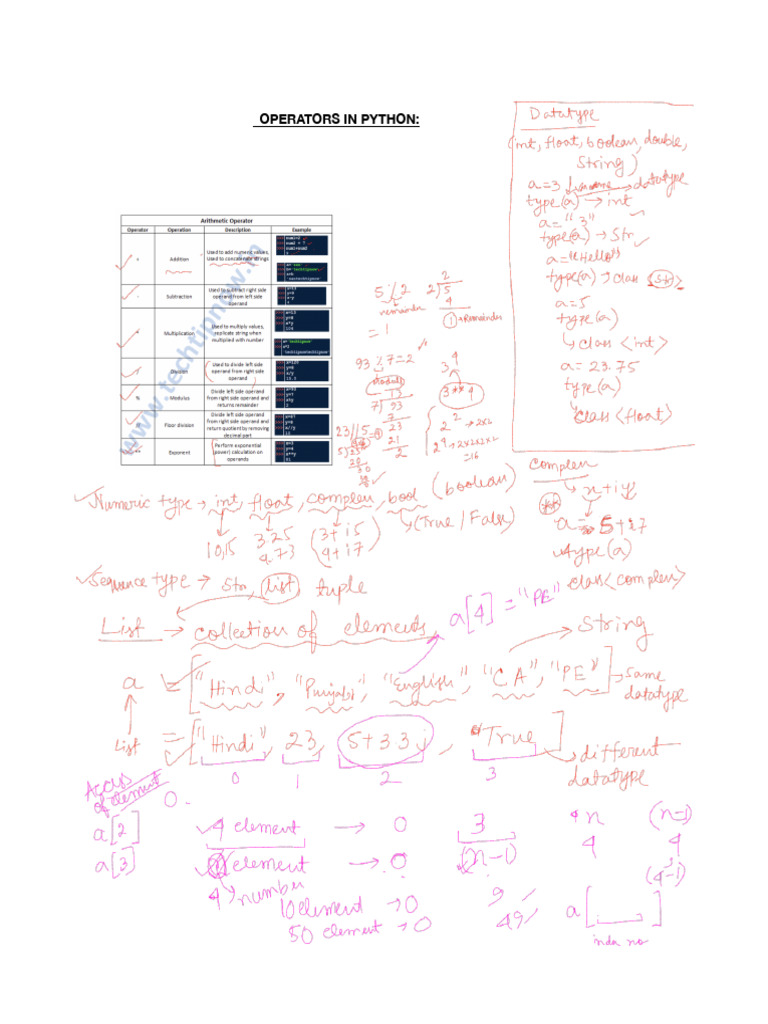 OPERATORS IN PYTHON:
Datatype
(int, float, boolean, double,
String)
a=3 → datatype
type(a) → int
a="3"
type(a) → Str
a="Hello"
type(a) → class <Str>
a=5
type(a)
↳ class <int>
a=23.75
type(a)
class <float>
Arithmetic Operator
Operator Operation Description Example
+ Addition Used to add numeric values,
Used to concatenate strings
- Subtraction Used to subtract right side
operand from left side
operand
* Multiplication Used to multiply values,
replicate string when
multiplied with number
/ Division Used to divide left side
operand from right side
operand
% Modulus Divide left side operand
from right side operand and
returns remainder
// Floor division Divide left side operand
from right side operand and
return quotient by removing
decimal part
** Exponent Perform exponential
(power) calculation on
operands
www.techtipnow.in
5 % 2
remainder
= 1
2
2)5
4
1 → Remainder
93 % 7 = 2
Module
13
7)93
7
23
21
2
3^4
3**4
2^2 → 2x2
2^4 → 2x2x2x2
=16
23//5=4
Complex
↳ x+iy
a= 5+i7
type(a)
class <complex>
Numeric type → int, float, complex, bool (boolean)
↳ (True/False)
10,15 3.25 (3+i5)
9.73 9+i7
Sequence type → Str, list, tuple
List → collection of elements
a[4]="PE"
String
a = ["Hindi", "Punjabi", "English", "CA", "PE"] → same
datatype
List = ["Hindi", 23, 5+33j, "True"]
↳ different
datatype
0 1 2 3
Access
of element
0
a[2] 4 element → 0 3 n (n-1)
a[3] element → 0 (n-1) 4 4
(4-1)
number
10 element → 0 9
50 element → 0 49
a[ ]